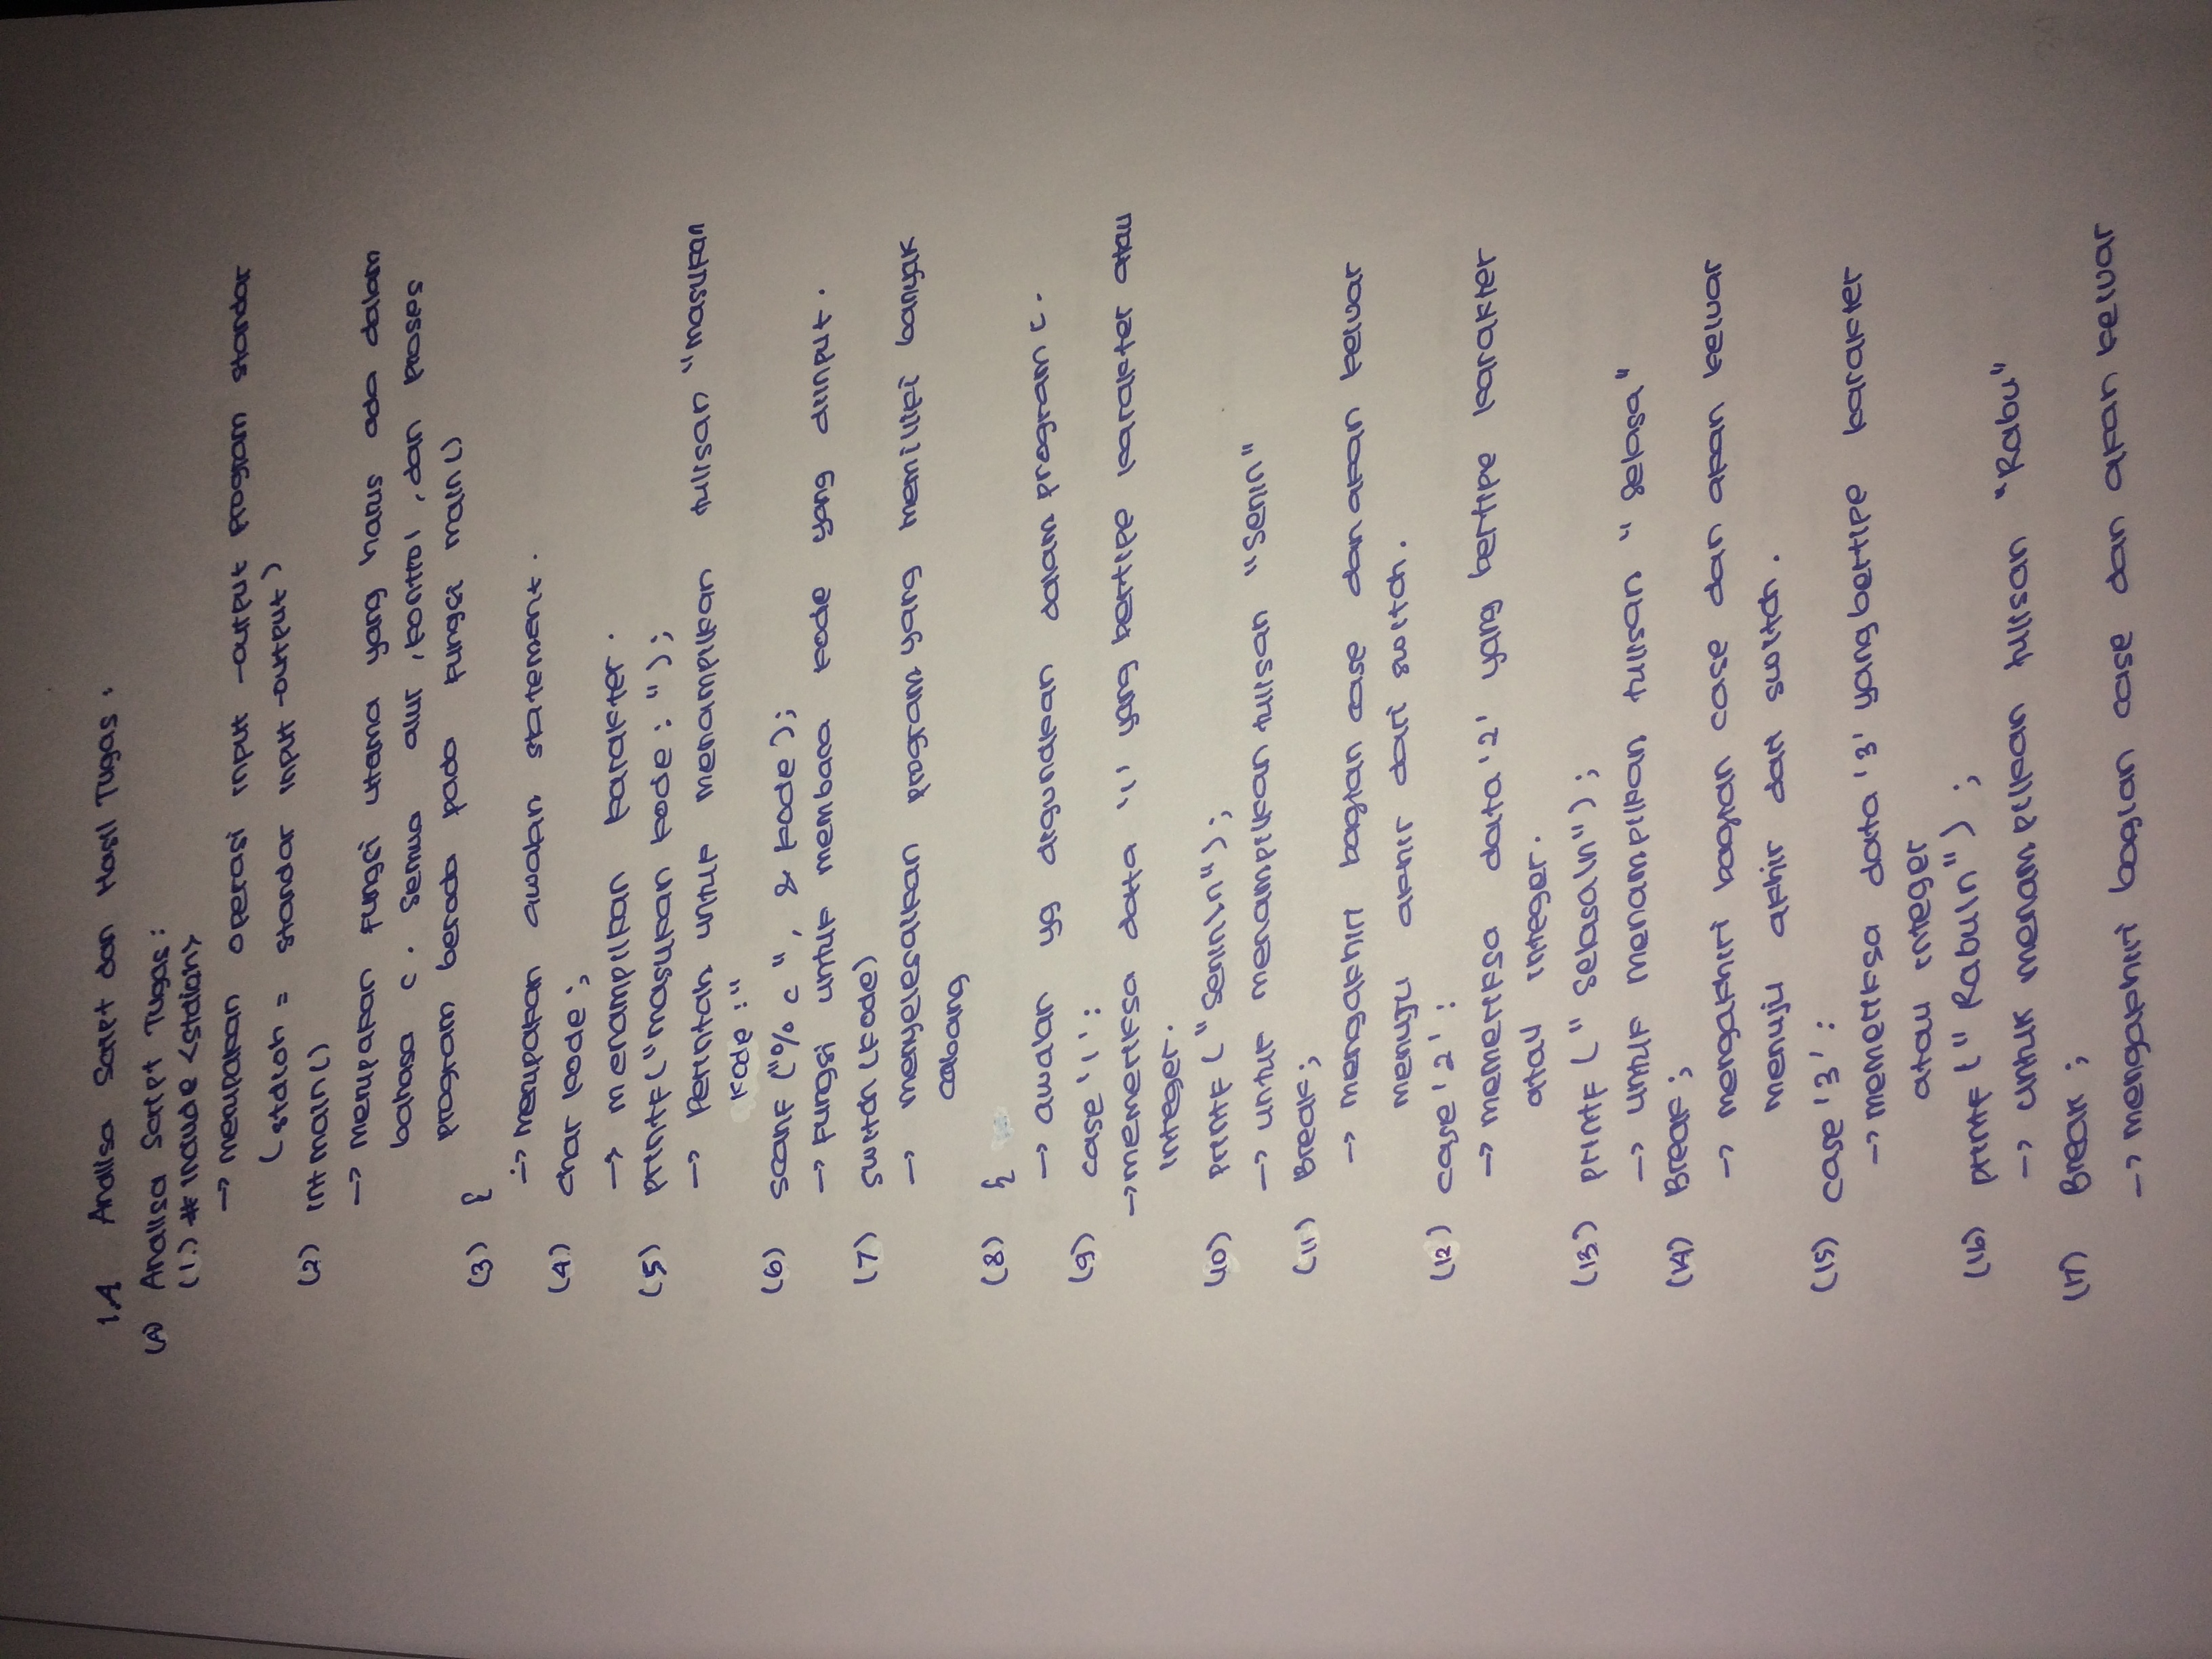 1.A Analisa Script dan Hasil Tugas :
(A) Analisa Script Tugas :
(1.) # include <stdioh>
→ merupakan operasi input -output program standar
(stdioh = standar input -output)
(2) int main ()
→ merupakan fungsi utama yang harus ada dalam
bahasa c . semua alur , kontrol , dan proses
program berada pada fungsi main ()
(3) {
→ merupakan awalan statement .
(4) char kode ;
→ menampilkan karakter .
(5) printf ("masukan kode : ") ;
→ Perintah untuk menampilkan tulisan "masukan
kode : "
(6) scanf ("% c ", & kode ) ;
→ fungsi untuk membaca kode yang diinput .
(7) switch (kode)
→ menyelesaikan program yang memiliki banyak
cabang
(8) {
→ awalan yg digunakan dalam program c .
(9) case '1' :
→ memeriksa data '1' yang bertipe karakter atau
integer .
(10) printf ( "Senin\n" ) ;
→ untuk menampilkan tulisan "Senin"
(11) Break ;
→ mengakhiri bagian case dan akan keluar
menuju akhir dari switch .
(12) case '2' :
→ memeriksa data '2' yang bertipe karakter
atau integer .
(13) printf ( " Selasa\n" ) ;
→ untuk menampilkan tulisan " Selasa "
(14) Break ;
→ mengakhiri bagian case dan akan keluar
menuju akhir dari switch .
(15) case '3' :
→ memeriksa data '3' yang bertipe karakter
atau integer
(16) printf ( " Rabu\n" ) ;
→ untuk menampilkan tulisan "Rabu"
(17) Break ;
→ mengakhiri bagian case dan akan keluar